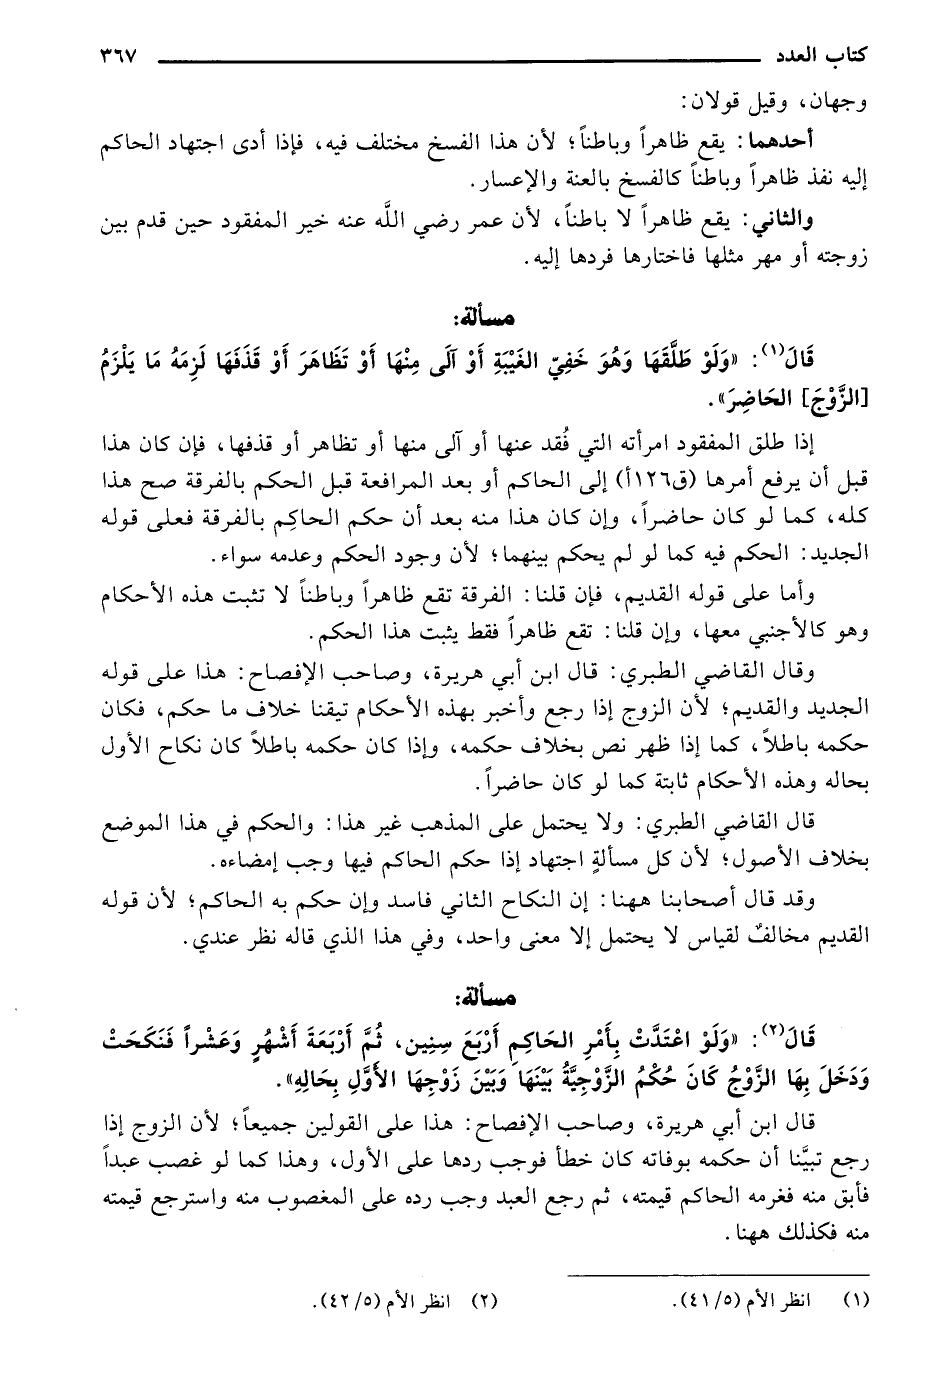 كتاب العدد ٣٦٧
وجهان، وقيل قولان:
أحدهما: يقع ظاهراً وباطناً؛ لأن هذا الفسخ مختلف فيه، فإذا أدى اجتهاد الحاكم
إليه نفذ ظاهراً وباطناً كالفسخ بالعنة والإعسار.
والثاني: يقع ظاهراً لا باطناً، لأن عمر رضي اللَّه عنه خير المفقود حين قدم بين
زوجته أو مهر مثلها فاختارها فردها إليه.
مسألة:
قَالَ(١): «وَلَوْ طَلَّقَهَا وَهُوَ خَفِيّ الغَيْبَةِ أَوْ آلَى مِنْهَا أَوْ تَظَاهَرَ أَوْ قَذَفَهَا لَزِمَهُ مَا يَلْزَمُ
[الزَّوْجَ] الحَاضِرَ».
إذا طلق المفقود امرأته التي فُقد عنها أو آلى منها أو تظاهر أو قذفها، فإن كان هذا
قبل أن يرفع أمرها (ق١٢٦أ) إلى الحاكم أو بعد المرافعة قبل الحكم بالفرقة صح هذا
كله، كما لو كان حاضراً، وإن كان هذا منه بعد أن حكم الحاكِم بالفرقة فعلى قوله
الجديد: الحكم فيه كما لو لم يحكم بينهما؛ لأن وجود الحكم وعدمه سواء.
وأما على قوله القديم، فإن قلنا: الفرقة تقع ظاهراً وباطناً لا تثبت هذه الأحكام
وهو كالأجنبي معها، وإن قلنا: تقع ظاهراً فقط يثبت هذا الحكم.
وقال القاضي الطبري: قال ابن أبي هريرة، وصاحب الإفصاح: هذا على قوله
الجديد والقديم؛ لأن الزوج إذا رجع وأخبر بهذه الأحكام تيقنا خلاف ما حكم، فكان
حكمه باطلاً، كما إذا ظهر نص بخلاف حكمه، وإذا كان حكمه باطلاً كان نكاح الأول
بحاله وهذه الأحكام ثابتة كما لو كان حاضراً.
قال القاضي الطبري: ولا يحتمل على المذهب غير هذا: والحكم في هذا الموضع
بخلاف الأصول؛ لأن كل مسألةٍ اجتهاد إذا حكم الحاكم فيها وجب إمضاءه.
وقد قال أصحابنا ههنا: إن النكاح الثاني فاسد وإن حكم به الحاكم؛ لأن قوله
القديم مخالفٌ لقياس لا يحتمل إلا معنى واحد، وفي هذا الذي قاله نظر عندي.
مسألة:
قَالَ(٢): «وَلَوْ اعْتَدَّتْ بِأَمْرِ الحَاكِمِ أَرْبَعَ سِنِين، ثُمَّ أَرْبَعَةَ أَشْهُرٍ وَعَشْراً فَنَكَحَتْ
وَدَخَلَ بِهَا الزَّوْجُ كَانَ حُكْمُ الزَّوْجِيَّةُ بَيْنَهَا وَبَيْنَ زَوْجِهَا الأَوَّلِ بِحَالِهِ».
قال ابن أبي هريرة، وصاحب الإفصاح: هذا على القولين جميعاً؛ لأن الزوج إذا
رجع تبيَّنا أن حكمه بوفاته كان خطأ فوجب ردها على الأول، وهذا كما لو غصب عبداً
فأبق منه فغرمه الحاكم قيمته، ثم رجع العبد وجب رده على المغصوب منه واسترجع قيمته
منه فكذلك ههنا.
(١) انظر الأم (٥/ ٤١). (٢) انظر الأم (٥/ ٤٢).